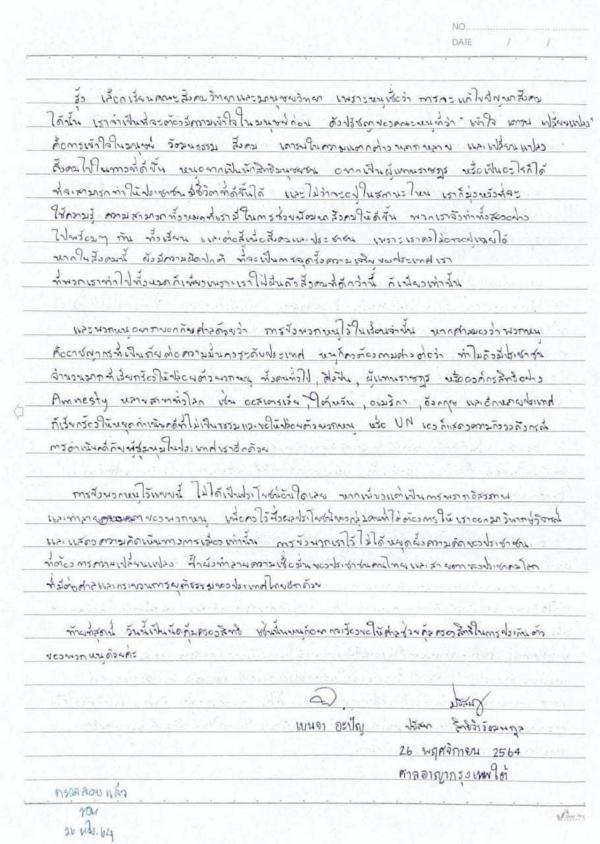 NO.
DATE / /
รุ้ง เลือกเรียนคณะสังคมวิทยาและมานุษยวิทยา เพราะหนูเชื่อว่า การจะแก้ไขปัญหาสังคม
ได้นั้น เราจำเป็นที่จะต้องมีความเข้าใจในมนุษย์ก่อน ดังปรัชญาของคณะหนูที่ว่า "เข้าใจ เคารพ เปลี่ยนแปลง"
คือการเข้าใจในมนุษย์ วัฒนธรรม สังคม เคารพในความแตกต่างหลากหลาย และเปลี่ยนแปลง
สังคมไปในทางที่ดีขึ้น หนูอยากเป็นนักสิทธิมนุษยชน อยากเป็นผู้แทนราษฎร หรือเป็นอะไรก็ได้
ที่จะสามารถทำให้ประชาชนมีชีวิตที่ดีขึ้นได้ และไม่ว่าจะอยู่ในสถานะไหน เราก็มุ่งหวังที่จะ
ใช้ความรู้ ความสามารถทั้งหมดที่เรามีในการช่วยพัฒนาสังคมให้ดีขึ้น พวกเราจึงทำทั้งสองอย่าง
ไปพร้อมๆ กัน ทั้งเรียน และต่อสู้เพื่อสังคมและประชาชน เพราะเราคงไม่อาจอยู่เฉยได้
หากในสังคมนี้ ยังมีความผิดปกติ ที่จะเป็นการฉุดรั้งความเจริญของประเทศเรา
ที่พวกเราทำไปทั้งหมดก็เพียงเพราะเราใฝ่ฝันถึงสังคมที่ดีกว่านี้ ก็เพียงเท่านั้น
และพวกหนูอยากบอกกับศาลด้วยว่า การขังพวกหนูไว้ในเรือนจำนั้น หากศาลมองว่าพวกหนู
คืออาชญากรที่เป็นภัยต่อความมั่นคงระดับประเทศ หนูก็คงต้องถามศาลต่อว่า ทำไมถึงมีประชาชน
จำนวนมากที่เรียกร้องให้ปล่อยตัวพวกหนู ทั้งคนทั่วไป, ศิลปิน, ผู้แทนราษฎร หรือองค์กรสิทธิอย่าง
Amnesty หลายสาขาทั่วโลก เช่น ออสเตรเลีย, ไต้หวัน, อเมริกา, อังกฤษ และอีกหลายประเทศ
ก็เรียกร้องให้หยุดดำเนินคดีที่ไม่เป็นธรรมและขอให้ปล่อยตัวพวกหนู หรือ UN เองก็แสดงความกังวลถึงกรณี
การดำเนินคดีกับผู้ชุมนุมในประเทศเราอีกด้วย
การขังพวกหนูไว้แบบนี้ ไม่ได้เป็นประโยชน์อันใดเลย หากเพียงแต่เป็นการพรากอิสรภาพ
และทำลาย ของพวกหนู เพื่อคงไว้ซึ่งผลประโยชน์ของกลุ่มคนที่ไม่ต้องการให้เราออกมาวิพากษ์วิจารณ์
และแสดงความคิดเห็นทางการเมืองเท่านั้น การขังพวกเราไว้ไม่ได้หยุดยั้งความคิดของประชาชน
ที่ต้องการความเปลี่ยนแปลง ซ้ำยังทำลายความเชื่อมั่นของประชาชนคนไทยและสายตาของประชาคมโลก
ที่มีต่อศาลและกระบวนการยุติธรรมของประเทศไทยอีกด้วย
ท้ายที่สุดนี้ วันนี้เป็นนัดคุ้มครองสิทธิ เช่นนั้นหนูก็อยากเรียกร้องขอให้ศาลช่วยคุ้มครองสิทธิในการประกันตัว
ของพวกหนูด้วยค่ะ
เบนจา อะปัญ ปนัสยา สิทธิจิรวัฒนกุล
26 พฤศจิกายน 2564
ศาลอาญากรุงเทพใต้
ตรวจสอบแล้ว
26 พ.ย. 64